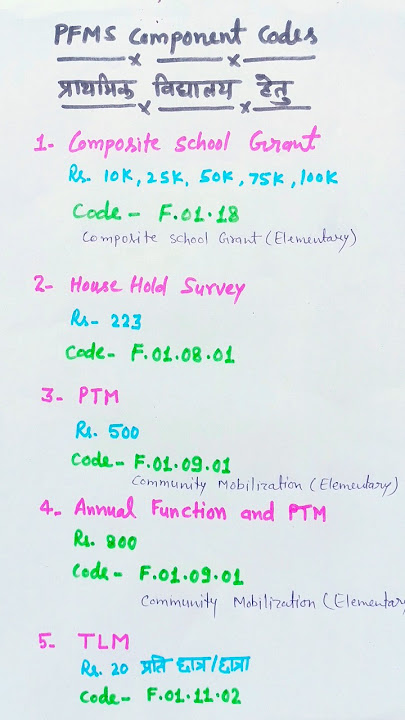 PFMS Component Codes
प्राथमिक विद्यालय हेतु
1- Composite School Grant
Rs. 10K, 25K, 50K, 75K, 100K
Code - F.01.18
Composite School Grant (Elementary)
2- House Hold Survey
Rs- 223
Code- F.01.08.01
3- PTM
Rs. 500
Code- F.01.09.01
Community Mobilization (Elementary)
4- Annual Function and PTM
Rs. 800
Code- F.01.09.01
Community Mobilization (Elementary
5. TLM
Rs. 20 प्रति छात्र/छात्रा
Code- F.01.11.02